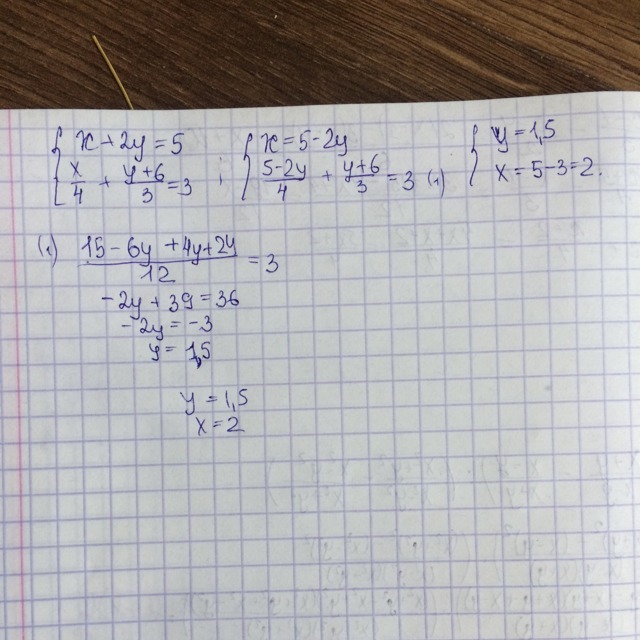 { x + 2y = 5
{ x/4 + (y+6)/3 = 3 ;
{ x = 5 - 2y
{ (5-2y)/4 + (y+6)/3 = 3 (1)
{ y = 1,5
{ x = 5 - 3 = 2.
(1) (15 - 6y + 4y + 24)/12 = 3
-2y + 39 = 36
-2y = -3
y = 1,5
y = 1,5
x = 2